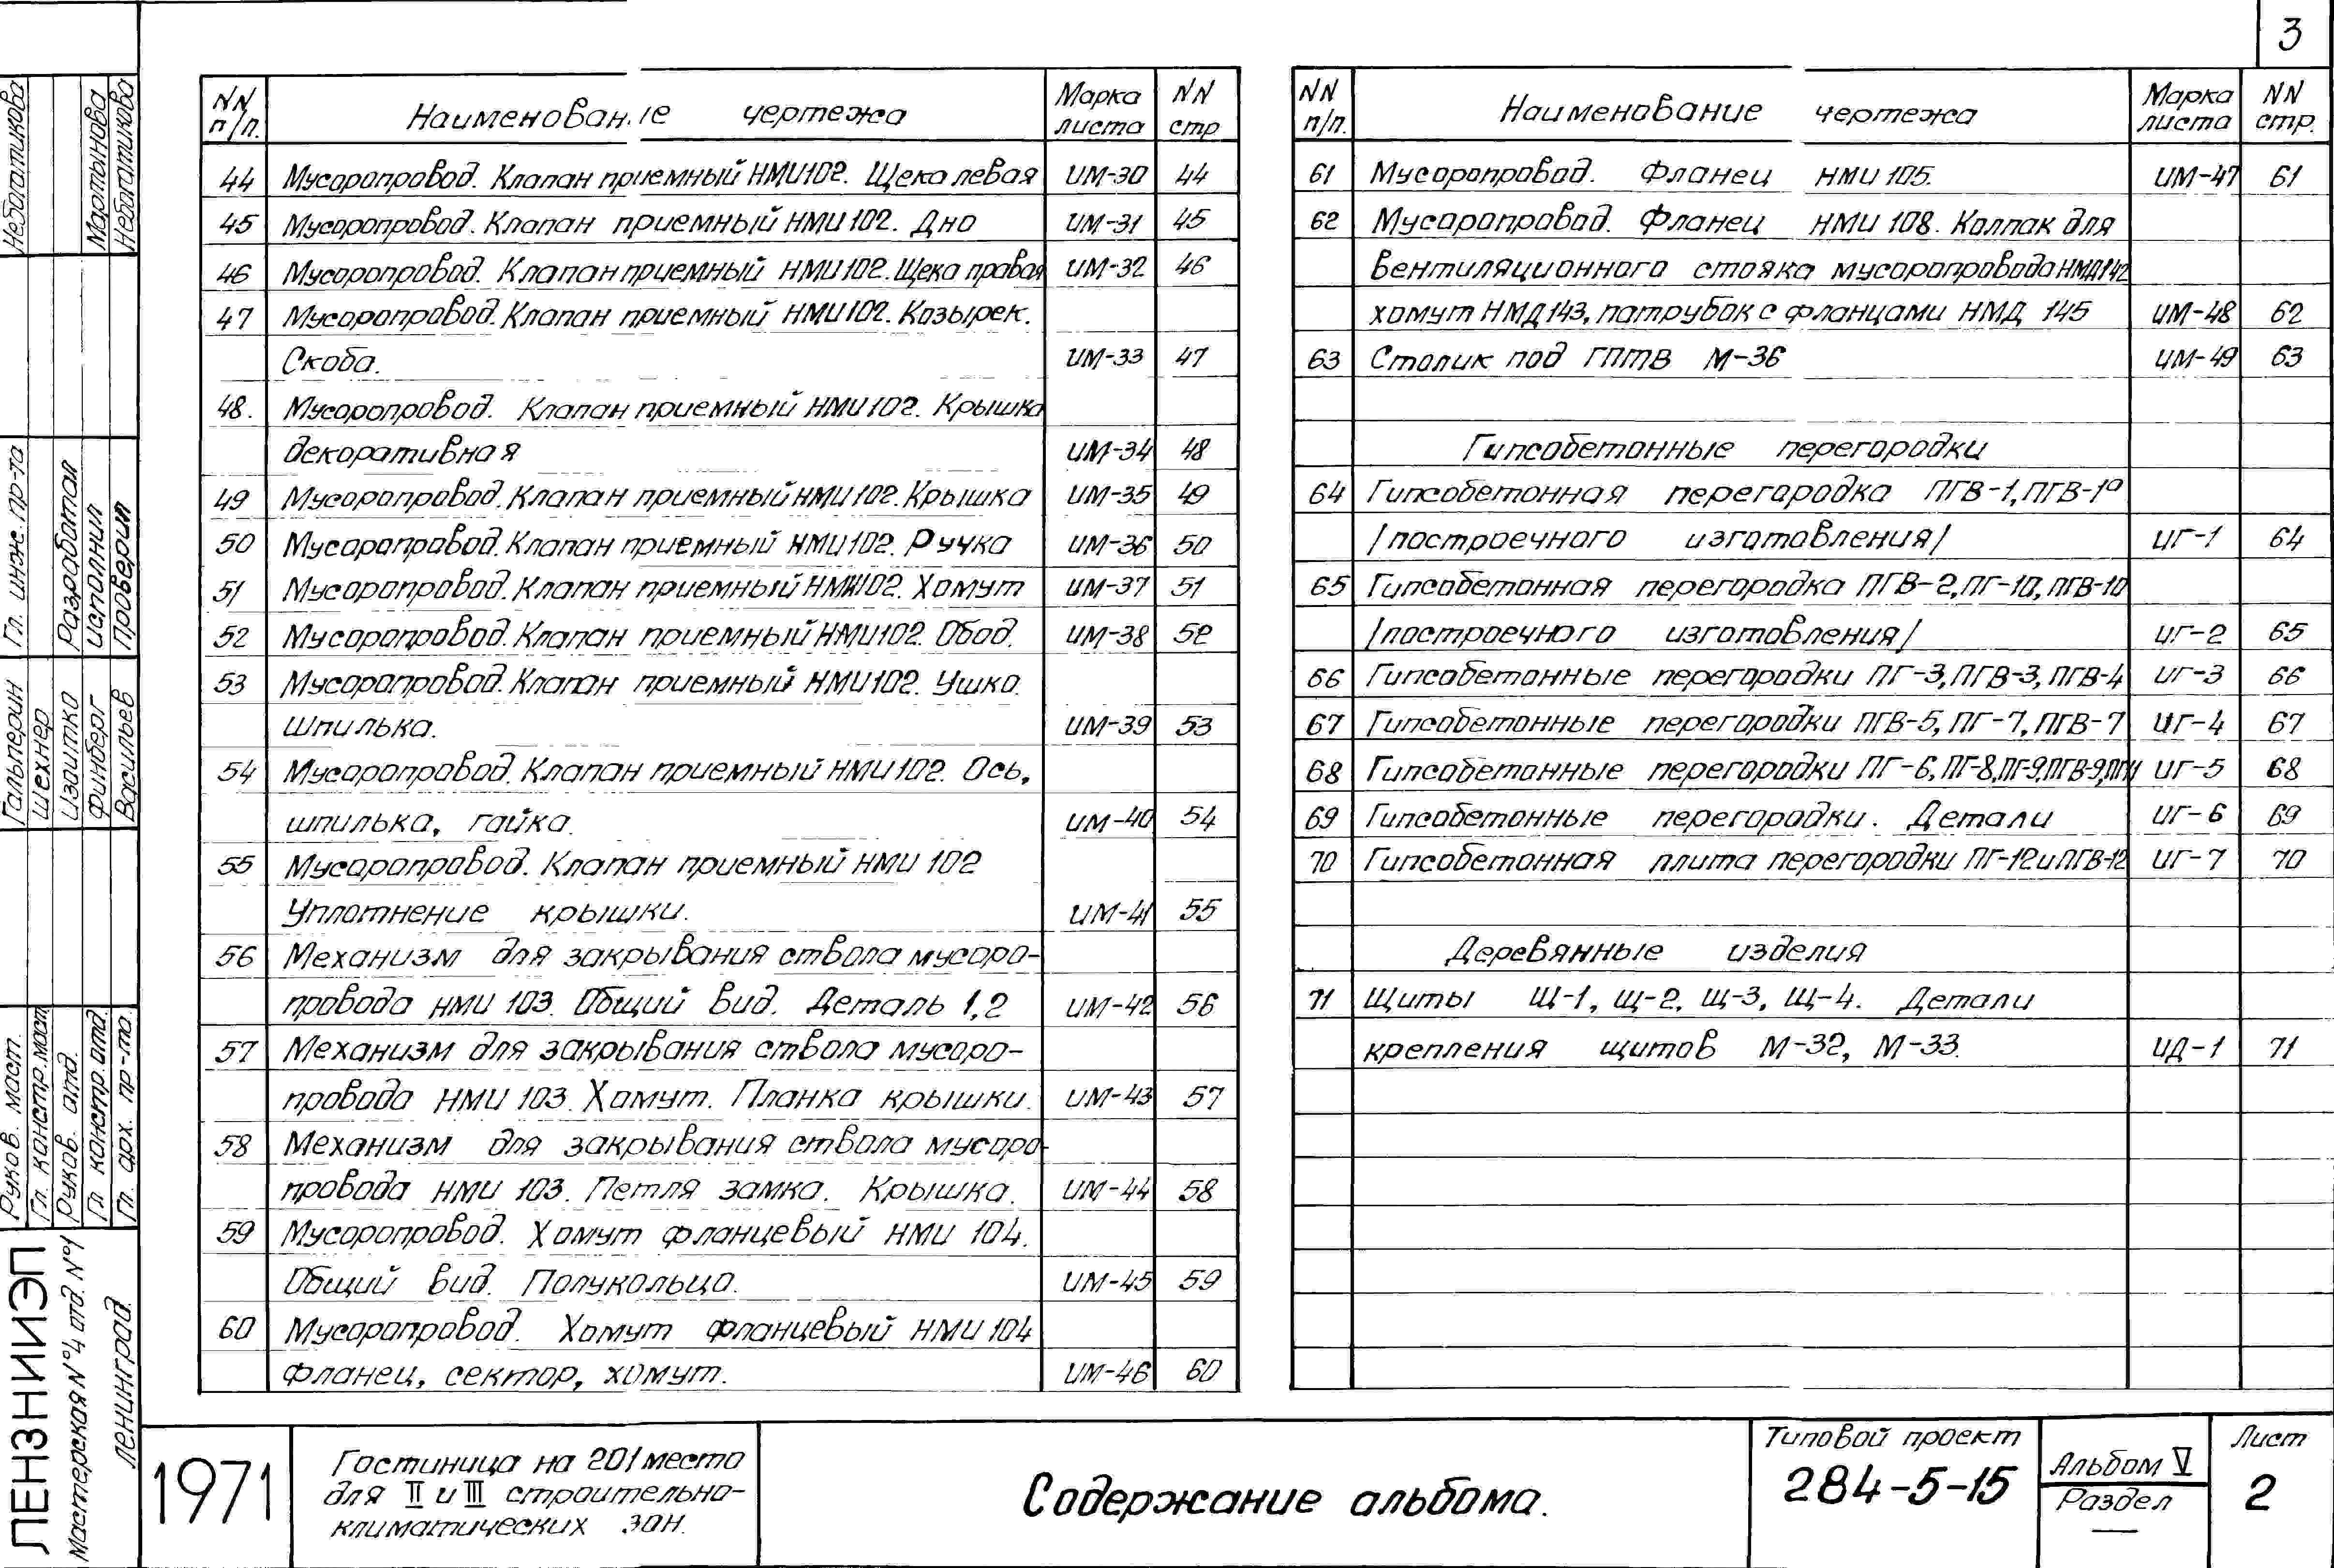 3
NN п/п. Наименование чертежа Марка листа NN стр
44 Мусоропровод. Клапан приемный НМИ102. Щека левая ИМ-30 44
45 Мусоропровод. Клапан приемный НМИ 102. Дно ИМ-31 45
46 Мусоропровод. Клапан приемный НМИ 102. Щека правая ИМ-32 46
47 Мусоропровод. Клапан приемный НМИ 102. Козырек.
Скоба. ИМ-33 47
48. Мусоропровод. Клапан приемный НМИ 102. Крышка
декоративная ИМ-34 48
49 Мусоропровод. Клапан приемный НМИ 102. Крышка ИМ-35 49
50 Мусоропровод. Клапан приемный НМИ 102. Ручка ИМ-36 50
51 Мусоропровод. Клапан приемный НМИ102. Хомут ИМ-37 51
52 Мусоропровод. Клапан приемный НМИ102. Обод. ИМ-38 52
53 Мусоропровод. Клапан приемный НМИ 102. Ушко.
Шпилька. ИМ-39 53
54 Мусоропровод. Клапан приемный НМИ 102. Ось,
шпилька, гайка. ИМ-40 54
55 Мусоропровод. Клапан приемный НМИ 102
Уплотнение крышки. ИМ-41 55
56 Механизм для закрывания ствола мусоро-
провода НМИ 103. Общий вид. Деталь 1,2 ИМ-42 56
57 Механизм для закрывания ствола мусоро-
провода НМИ 103. Хомут. Планка крышки. ИМ-43 57
58 Механизм для закрывания ствола мусоро-
провода НМИ 103. Петля замка. Крышка. ИМ-44 58
59 Мусоропровод. Хомут фланцевый НМИ 104.
Общий вид. Полукольцо. ИМ-45 59
60 Мусоропровод. Хомут фланцевый НМИ 104
Фланец, сектор, хомут. ИМ-46 60
NN п/п. Наименование чертежа Марка листа NN стр.
61 Мусоропровод. Фланец НМИ 105. ИМ-47 61
62 Мусоропровод. Фланец НМИ 108. Колпак для
вентиляционного стояка мусоропровода НМД142
хомут НМД 143, патрубок с фланцами НМД 145 ИМ-48 62
63 Столик под ГПТВ М-36 ИМ-49 63
Гипсобетонные перегородки
64 Гипсобетонная перегородка ПГВ-1, ПГВ-1а
/построечного изготовления/ ИГ-1 64
65 Гипсобетонная перегородка ПГВ-2, ПГ-10, ПГВ-10
/построечного изготовления/ ИГ-2 65
66 Гипсобетонные перегородки ПГ-3, ПГВ-3, ПГВ-4 ИГ-3 66
67 Гипсобетонные перегородки ПГВ-5, ПГ-7, ПГВ-7 ИГ-4 67
68 Гипсобетонные перегородки ПГ-6, ПГ-8, ПГ-9, ПГВ-9, ИГ-5 68
69 Гипсобетонные перегородки. Детали ИГ-6 69
70 Гипсобетонная плита перегородки ПГ-12 и ПГВ-12 ИГ-7 70
Деревянные изделия
71 Щиты Щ-1, Щ-2, Щ-3, Щ-4. Детали
крепления щитов М-32, М-33. ИД-1 71
Небогатикова
Мартынова
Небогатикова
Гл. инж. пр-та
Разработал
исполнил
проверил
Гальперин
Шехнер
Изоитко
Финберг
Васильев
Руков. маст.
Гл. констр. маст
Руков. отд.
Гл. констр. отд.
Гл. арх. пр-та.
ЛЕНЗНИИЭП
Мастерская №4 отд. №1
Ленинград.
1971
Гостиница на 201 место
для II и III строительно-
климатических зон.
Содержание альбома.
Типовой проект
284-5-15
Альбом V
Раздел
—
Лист
2